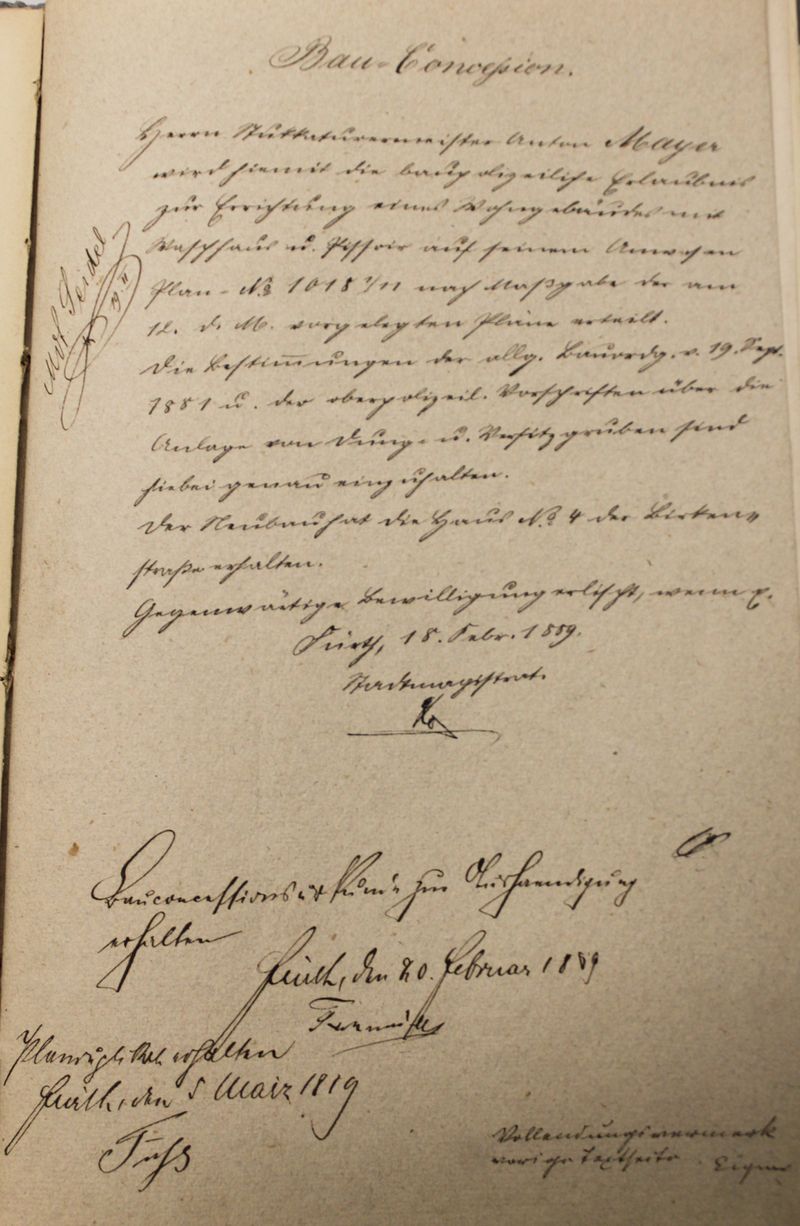 Bau-Concession.
Herrn Stukkateurermeister Anton Mayer
wird hiemit die baupolizeiliche Erlaubnis
zur Errichtung eines Wohngebäudes mit
Waschhaus u. Pissoir auf seinem Anwesen
Plan-No 1018 1/11 nach Maßgabe der am
12. d. M. vorgelegten Pläne erteilt.
Die Bestimmungen der allg. Bauordg. v. 19. Sept.
1881 u. der oberpolizeil. Vorschriften über die
Anlage von Dung- u. Versitzgruben sind
hiebei genau einzuhalten.
Der Neubau hat die Haus No 4 der Birken-
straße erhalten.
Gegenwärtige Bewilligung erlischt, wenn p.
Fürth, 18. Febr. 1889.
Stadtmagistrat.
Seidel
Bauconcessions-Urkunde zur Aushaendigung
erhalten
Fürth, den 20. Februar 1889
Planduplikat erhalten
Fürth, den 5 März 1889
Fuchs
Vollendungsvermerk
vorige Textseite.